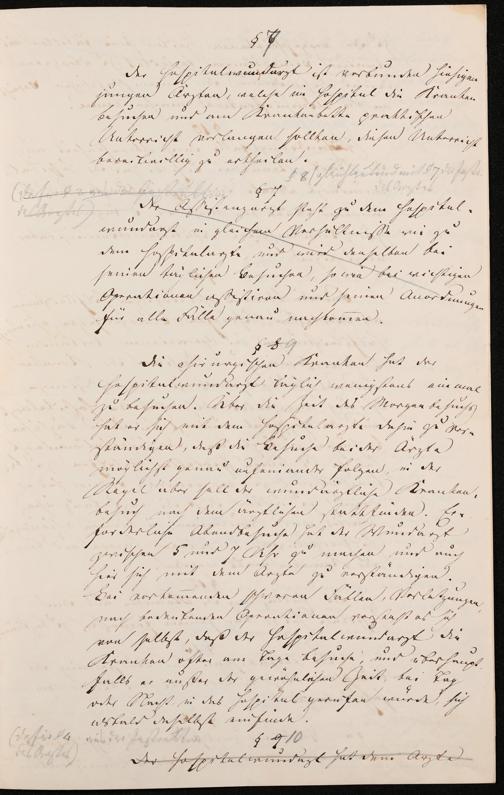 § 7
Der Hospitalwundarzt ist verbunden hiesigen
jungen Ärzten, welche im Hospital die Kranken
besuchen und am Krankenbette praktischen
Unterricht verlangen sollten, diesen Unterricht
bereitwillig zu ertheilen.
§ 8 gleichlautend mit § 7 der Instr.
des Arztes
§ 7
Der Assistenzarzt steht zu dem Hospital-
wundarzt in gleichem Verhältnisse wie zu
dem Hospitalarzte, und wird denselben bei
seinen täglichen Besuchen, sowie bei wichtigen
Operationen assistiren und seinen Anordnungen
für alle Fälle genau nachkommen.
§ 8 9
Die chirurgischen Kranken hat der
Hospitalwundarzt täglich wenigstens einmal
zu besuchen. Über die Zeit des Morgenbesuchs
hat er sich mit dem Hospitalarzte dahin zu ver-
ständigen, daß die Besuche beider Ärzte
möglichst genau aufeinander folgen, in der
Regel aber soll der wundärztliche Kranken-
besuch nach dem ärztlichen stattfinden. Er-
forderliche Abendbesuche hat der Wundarzt
zwischen 5 und 7 Uhr zu machen und auch
hier sich mit dem Arzte zu verständigen.
Bei vorkommenden schweren Fällen, Verletzungen,
nach bedeutenden Operationen versteht es sich
von selbst, daß der Hospitalwundarzt die
Kranken öfter am Tage besuche, und überhaupt
falls er außer der gewöhnlichen Zeit bei Tag
oder Nacht in das Hospital gerufen würde, sich
alsbald daselbst einfinde.
§ 9 10
Der Hospitalwundarzt hat dem Arzte